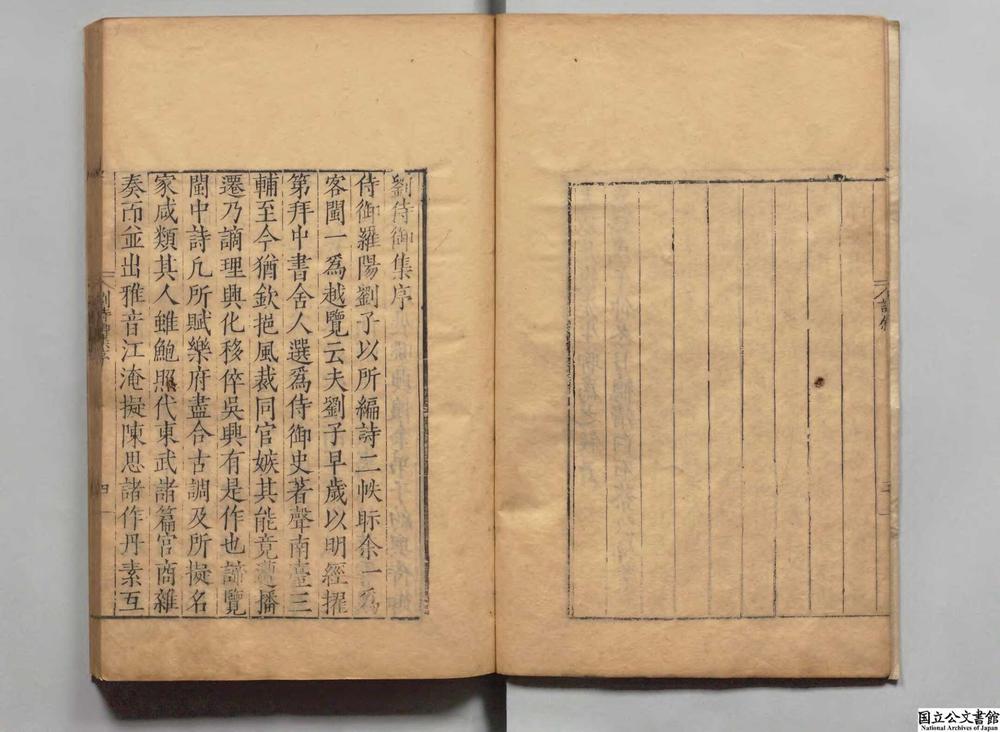 劉侍御集序
侍御羅陽劉子以所編詩二帙眎余一爲
客閩一爲越覽云夫劉子早歲以明經擢
第拜中書舍人選爲侍御史著聲南臺三
輔至今猶欽挹風裁同官嫉其能竟遭播
遷乃謫理興化移倅吳興有是作也諦覽
閩中詩凡所賦樂府盡合古調及所擬名
家咸類其人雖鮑照代東武諸篇官商雜
奏而並出雅音江淹擬陳思諸作丹素互
劉侍御集序
四
国立公文書館
National Archives of Japan